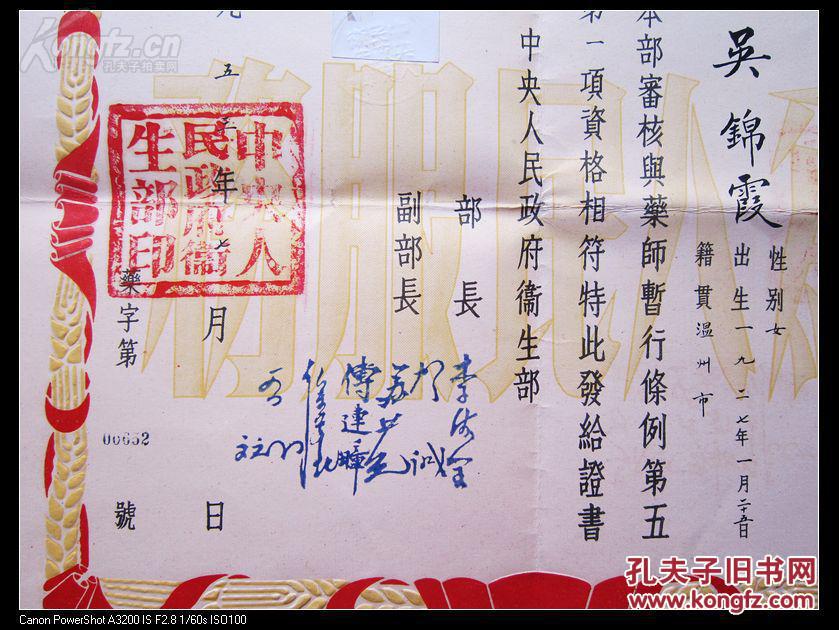 吳錦霞
性別女
出生一九二七年一月二十五日
籍貫温州市
本部審核與藥師暫行條例第五
第一項資格相符特此發給證書
中央人民政府衞生部
部長
副部長
李德全
傅連暲
五
年七月
日
中央人民政府衞生部印
藥字第
00652
號
Kongfz.cn
孔夫子拍卖网
孔夫子旧书网
www.kongfz.com
Canon PowerShot A3200 IS F2.8 1/60s ISO100